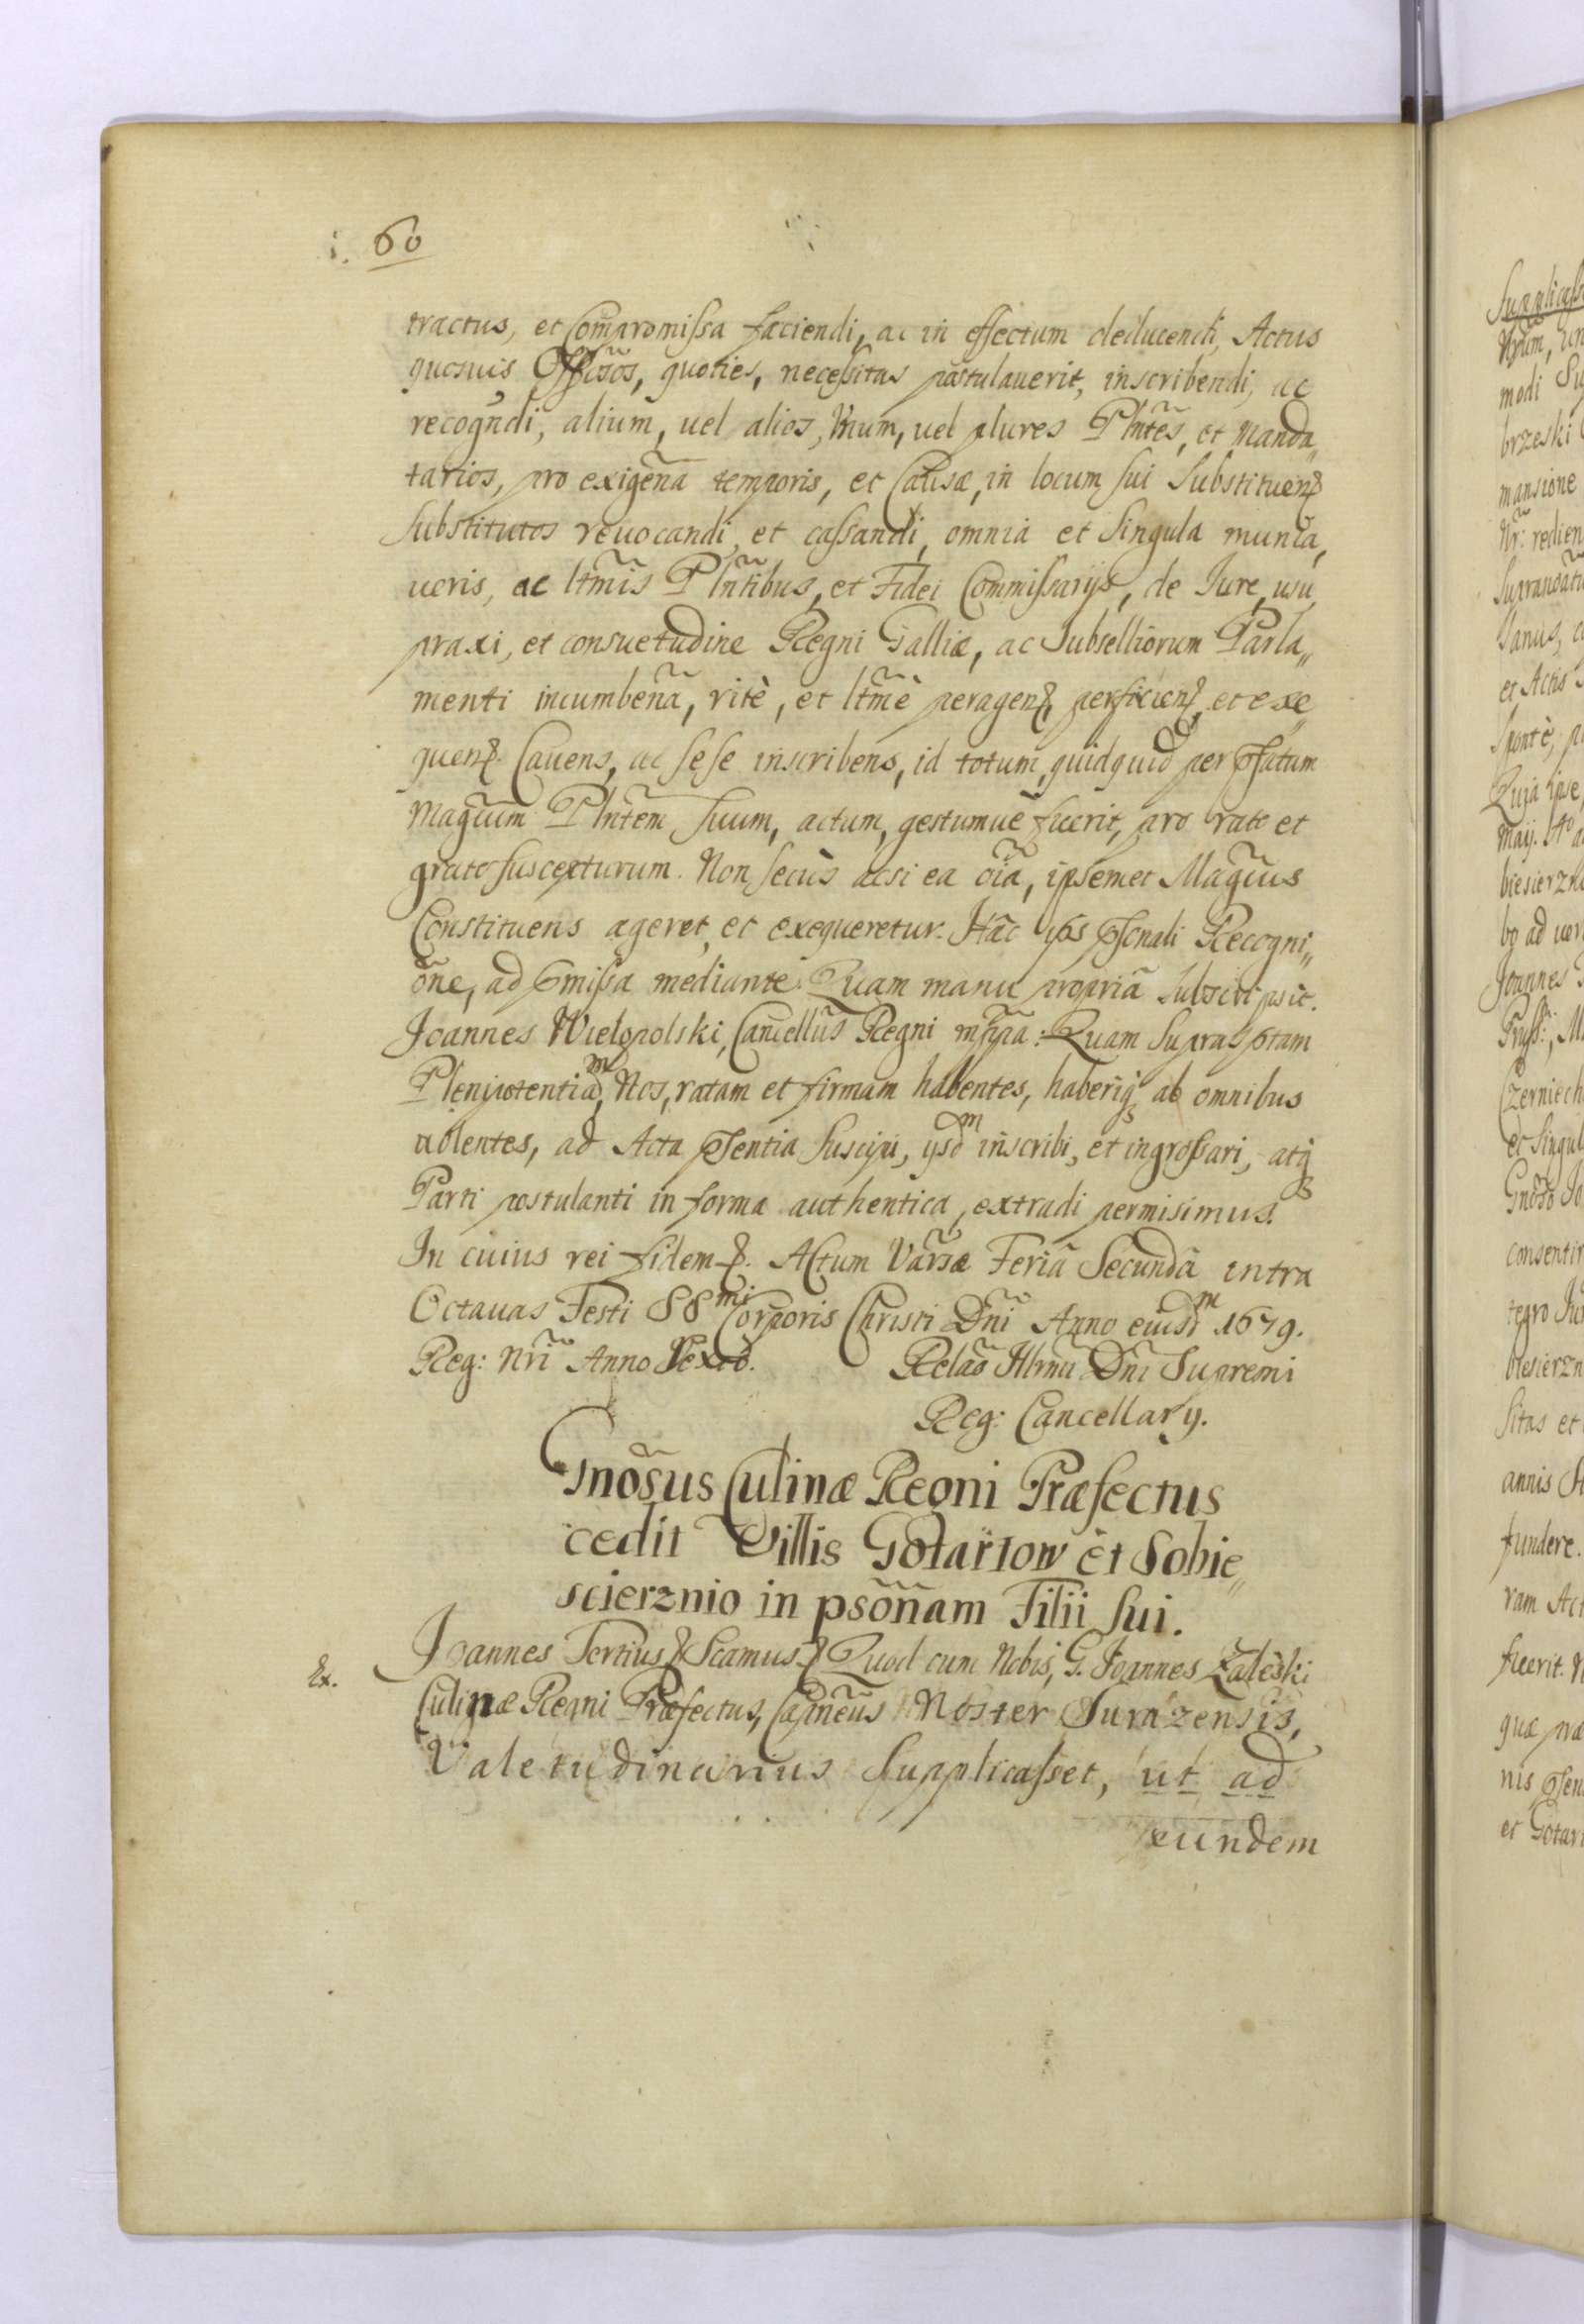 i. 60
tractus, et Compromissa faciendi, ac in effectum deducendi, Actus
quosuis Offiosos, quoties, necessitas postulauerit, inscribendi, ac
recogndi, alium, uel alios, Vnum, uel plures Plntes, et Manda„
tarios, pro exigena temporis, et Causæ, in locum sui Substituen
substitutos reuocandi, et cassandi, omnia et singula munia,
ueris, ac ltmis Plntibus, et Fidei Commissarijs, de Iure, usu,
praxi, et consuetudine Regni Galliæ, ac Subselliorum Parla„
menti incumbena, ritè, et ltmè peragen, perficien, et exe„
quen. Cauens, ac sese inscribens, id totum, quidquid per pfatum
Magcum Plntem suum, actum, gestumue fuerit, pro rato et
grato suscepturum. Non secus acsi ea oia, ipsemet Magcus
Constituens ageret, et exequeretur. Hac psonali Recogni„
one, ad pmissa mediante. Quam manu propria subscripsit.
Joannes Wielopolski, Cancellus Regni mppa. Quam suprascptam
Plenipotentiam, Nos, ratam et firmam habentes, haberiq3 ab omnibus
uolentes, ad Acta psentia suscipi, ijsdm inscribi, et ingrossari, atq3
Parti postulanti in forma authentica, extradi permisimus.
In cuius rei fidem. Actum Varsæ Feriâ Secundâ intra
Octauas Festi SSmi Corporis Christi Dni Anno eiusdm 1679.
Reg: Nri Anno Sexto. Relao Illrmi Dni Supremi
Reg: Cancellarij.
Gnosus Culinæ Regni Præfectus
cedit Villis Gotartow et Sobie„
scierznio in psonam Filii sui.
Ex. Joannes Tertius Scamus Quod cum Nobis, G. Joannes Zaleski
Culinæ Regni Præfectus, Capneus Noster Surazensis,
Valetudinarius supplicasset, ut ad
eundem